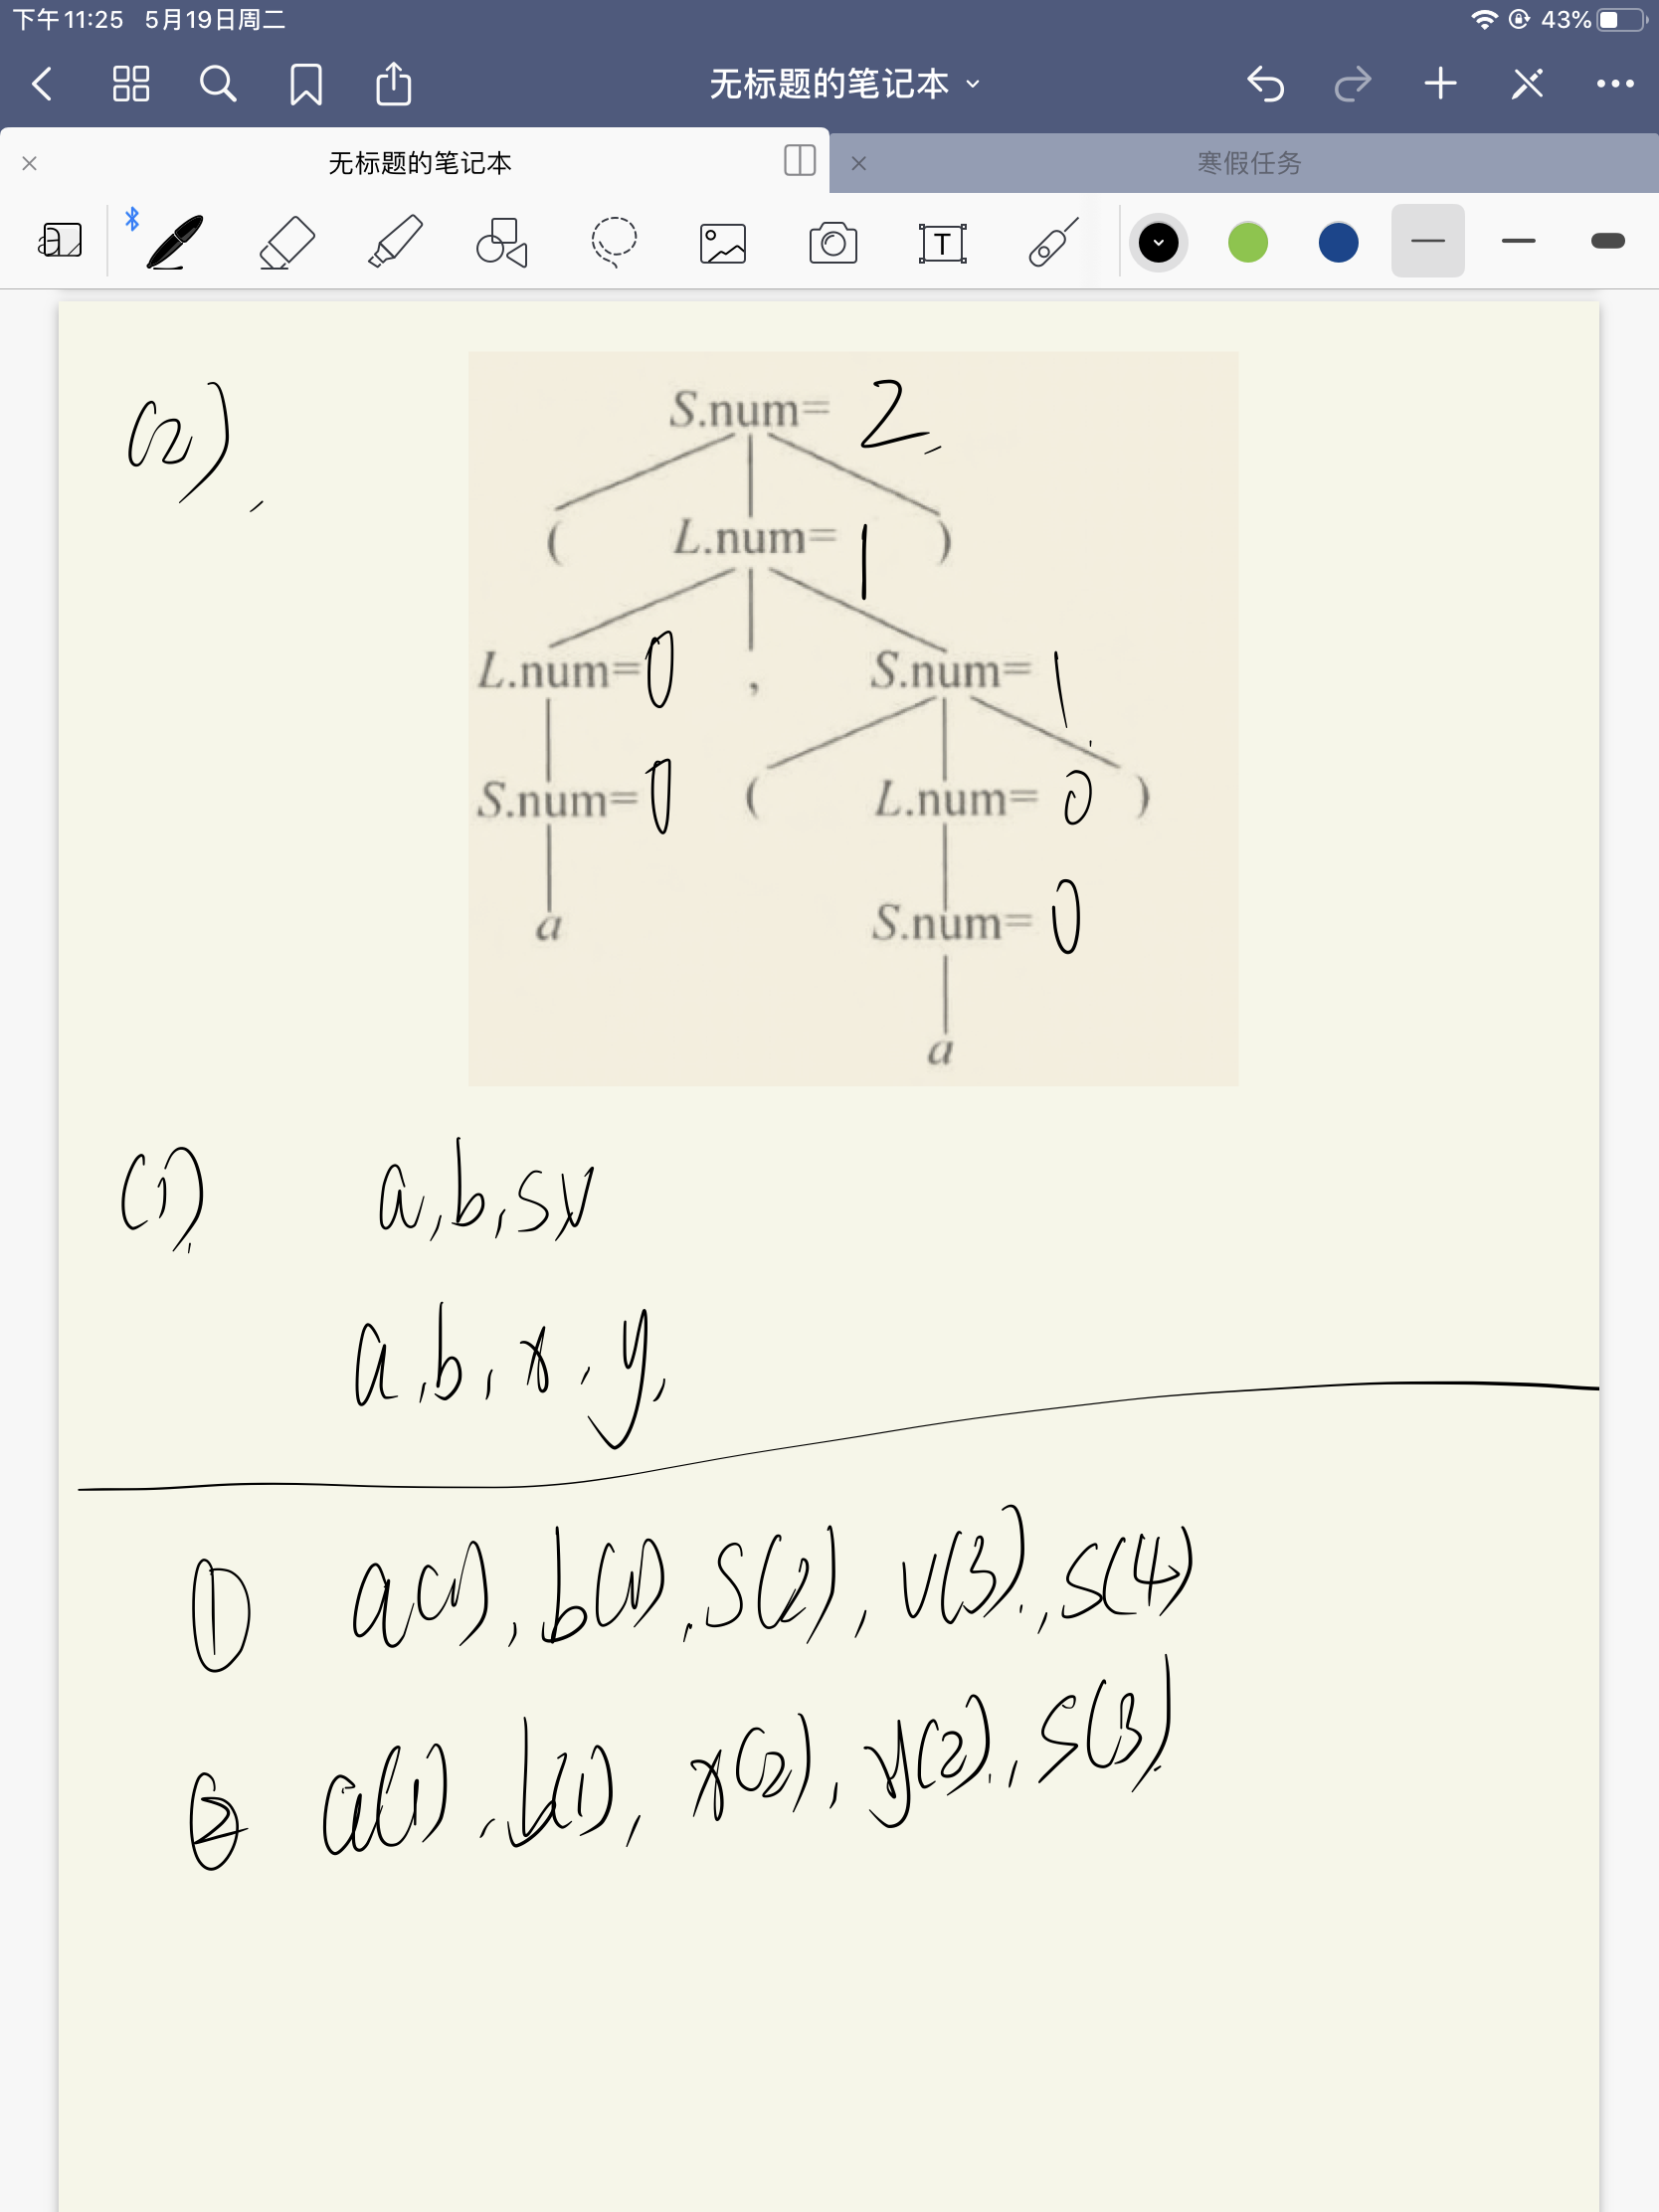 下午11:25 5月19日周二 43%
无标题的笔记本
无标题的笔记本 寒假任务
(2),
S.num= 2
( L.num= 1 )
L.num=0 , S.num= 1
S.num=0 ( L.num= 0 )
a S.num= 0
a
(1) a,b,s,v
a,b,x,y,
① a(1),b(1),s(2),v(3),s(4)
② a(1),b(1),x(2),y(2),s(3)